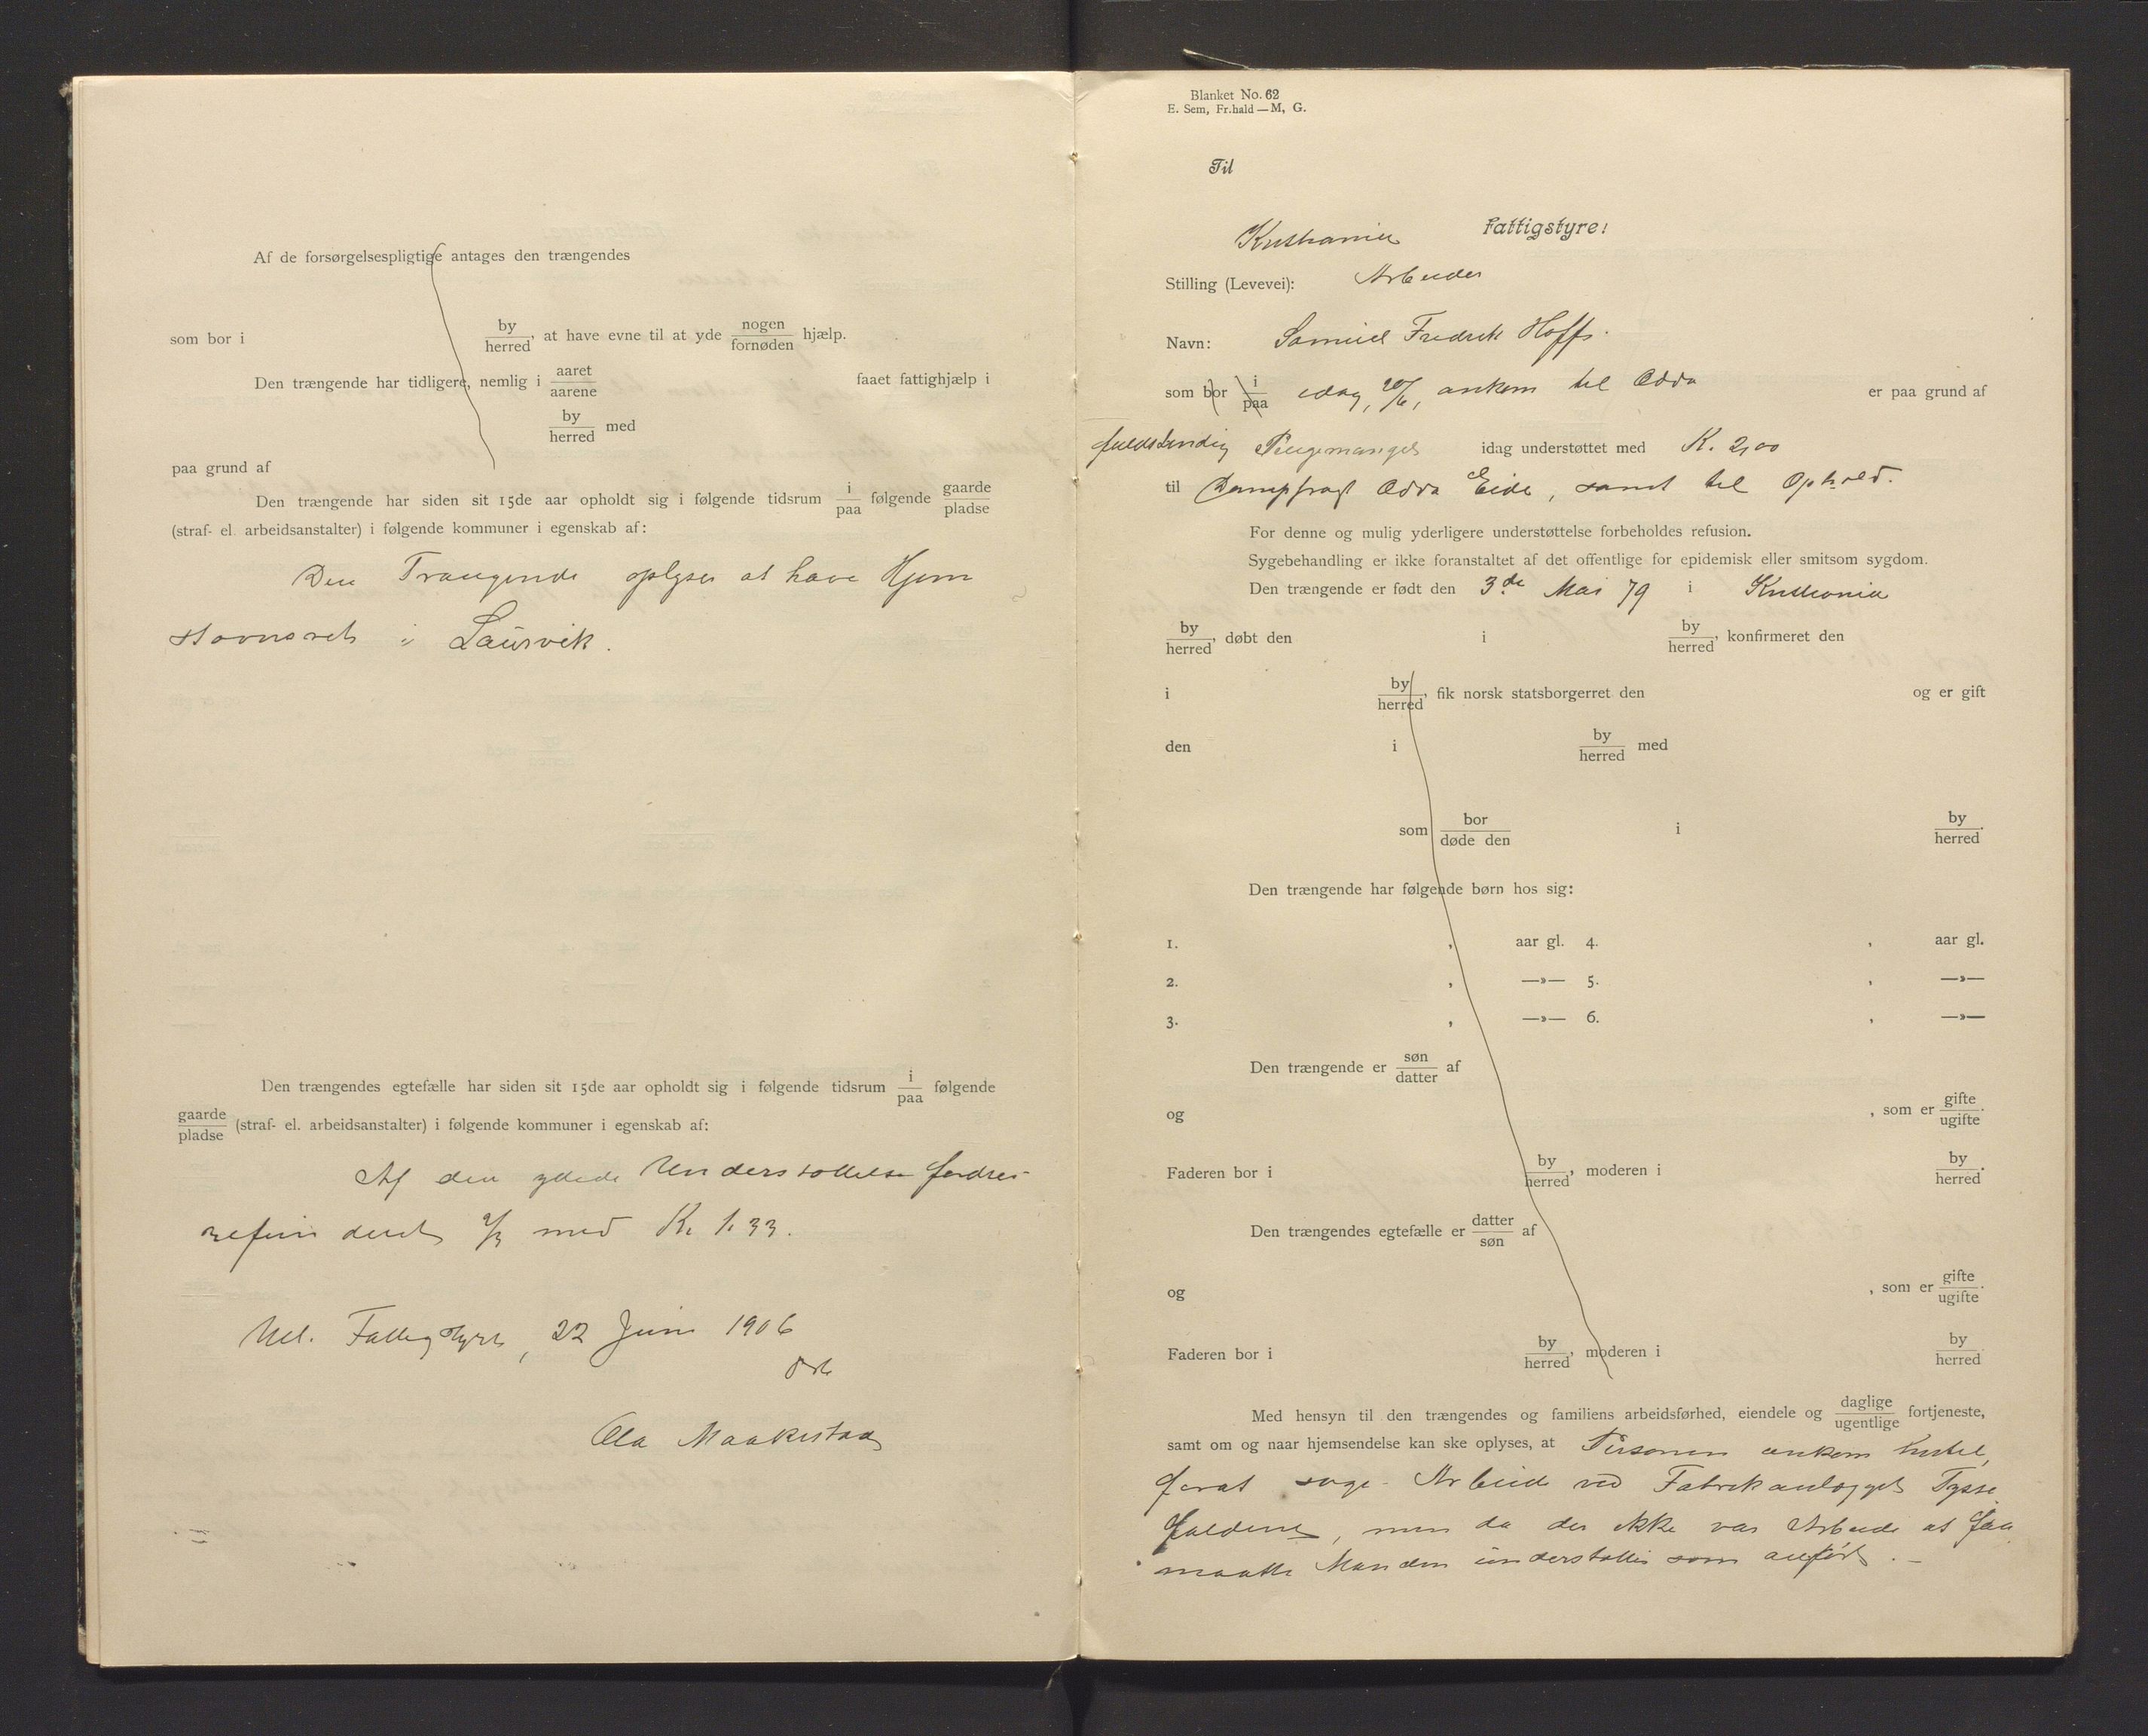 Af de forsørgelsespligtige antages den trængendes
som bor i by/herred, at have evne til at yde nogen/fornøden hjælp.
Den trængende har tidligere, nemlig i aaret/aarene faaet fattighjælp i
by/herred med
paa grund af
Den trængende har siden sit 15de aar opholdt sig i følgende tidsrum i/paa følgende gaarde/pladse
(straf- el. arbeidsanstalter) i følgende kommuner i egenskab af:
Den Trængende oplyser at have Hjem
stavnsret i Laurvik.
Den trængendes egtefælle har siden sit 15de aar opholdt sig i følgende tidsrum i/paa følgende
gaarde/pladse (straf- el. arbeidsanstalter) i følgende kommuner i egenskab af:
Af den ydede Understøttelse fordres
refunderet 2/3 med Kr 1.33.
Ull. Fattigstyre, 22 Juni 1906
Ola Maakestad
Blanket No. 62
E. Sem, Fr.hald — M, G.
Til
Kristiania Fattigstyre!
Stilling (Levevei): Arbeider
Navn: Samuel Fredrik Hoff.
som bor i/paa idag, 20/6, ankom til Odda er paa grund af
fuldstændig Pengemangel idag understøttet med K. 2,00
til Dampfragt Odda Eide, samt til Ophold.
For denne og mulig yderligere understøttelse forbeholdes refusion.
Sygebehandling er ikke foranstaltet af det offentlige for epidemisk eller smitsom sygdom.
Den trængende er født den 3de Mai 79 i Kristiania
by/herred, døbt den i by/herred, konfirmeret den
i by/herred, fik norsk statsborgerret den og er gift
den i by/herred med
som bor/døde den i by/herred.
Den trængende har følgende børn hos sig:
1. , aar gl. 4. , aar gl.
2. , —»— 5. , —»—
3. , —»— 6. , —»—
Den trængende er søn/datter af
og , som er gifte/ugifte.
Faderen bor i by/herred, moderen i by/herred.
Den trængendes egtefælle er datter/søn af
og , som er gifte/ugifte.
Faderen bor i by/herred, moderen i by/herred.
Med hensyn til den trængendes og familiens arbeidsførhed, eiendele og daglige/ugentlige fortjeneste,
samt om og naar hjemsendelse kan ske oplyses, at Personen ankom hertil,
forat søge Arbeide ved Fabrikanlægget Tysse
faldene, men da der ikke var Arbeide at faa
maatte Manden understøttes som anført. —